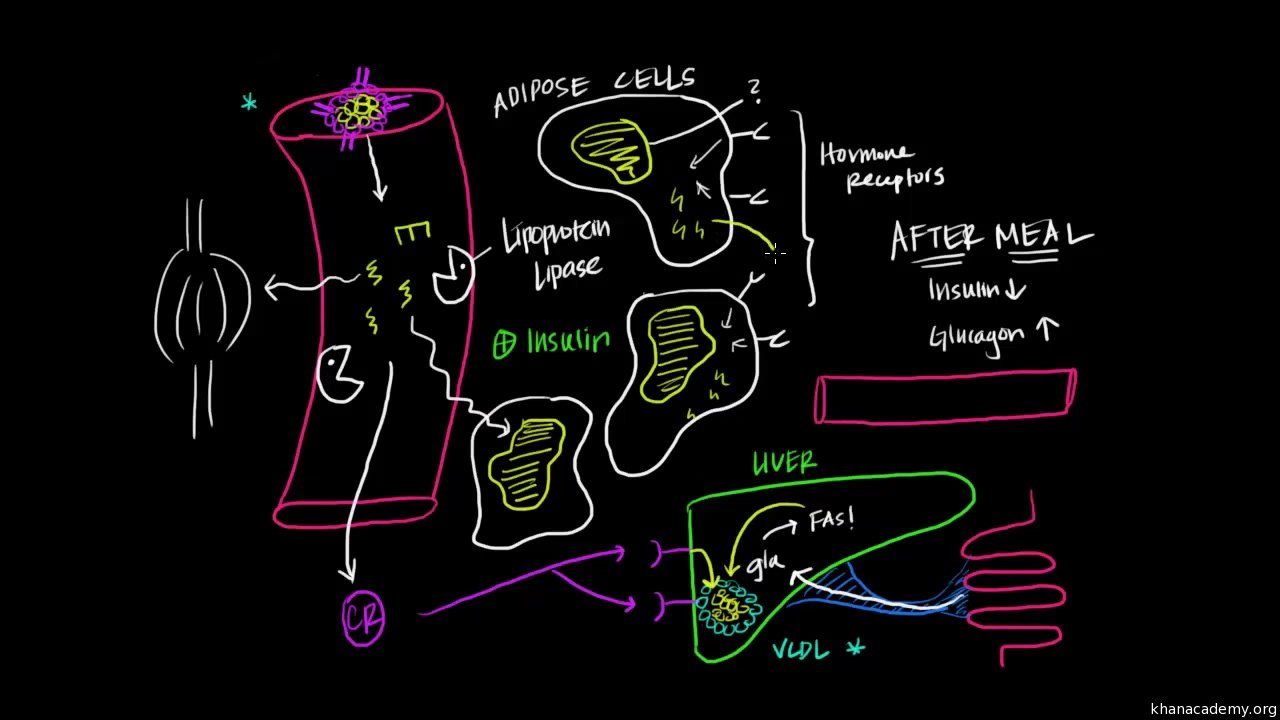 *
ADIPOSE CELLS
?
Hormone
receptors
Lipoprotein
Lipase
AFTER MEAL
Insulin ↓
Glucagon ↑
⊕ Insulin
LIVER
FAs!
glu
CR
VLDL *
khanacademy.org